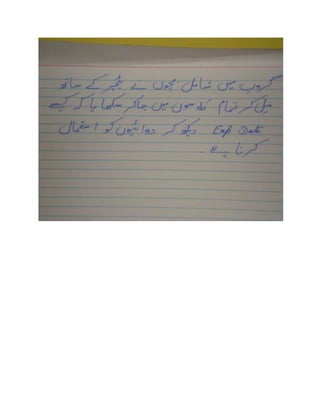 گروپ میں شامل بچوں نے ٹیچر کے ساتھ
مل کر تمام کلاسوں میں جا کر سکھایا کہ کیسے
Exp Date دیکھ کر دوائیوں کو استعمال
کرنا ہے۔